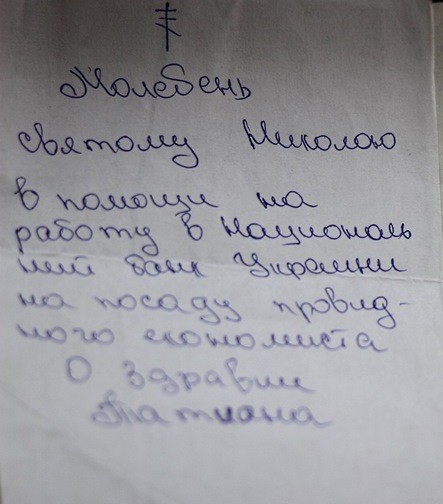 Молебень
святому Николаю
в помощи на
работу в Националь
ний банк Украини
на посаду провід-
ного економиста
О здравии
Татиана